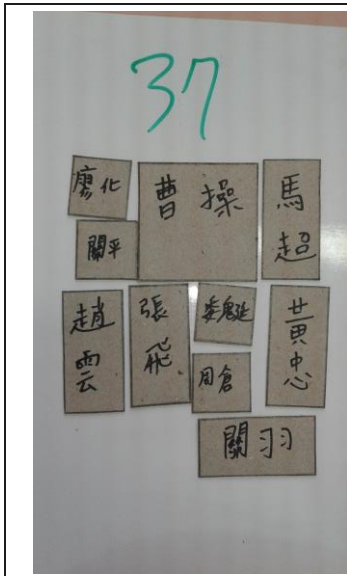 37
廖化
曹操
馬超
關平
趙雲
張飛
魏延
黃忠
周倉
關羽